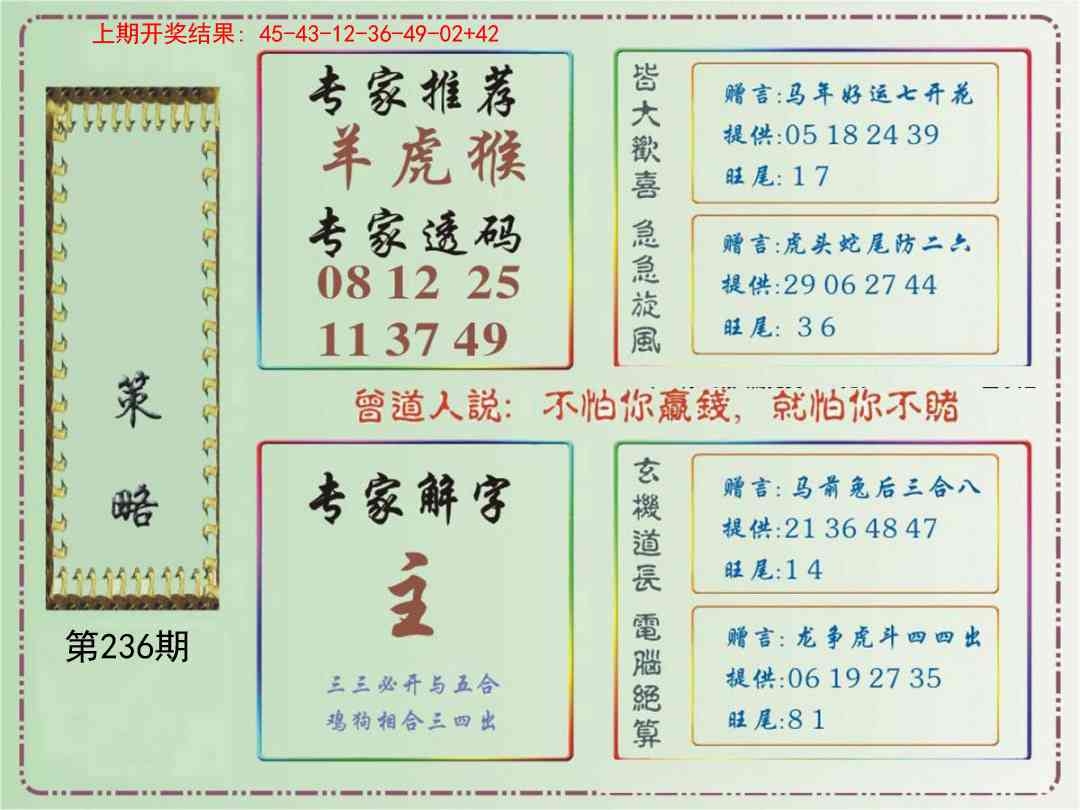 上期开奖结果: 45-43-12-36-49-02+42
策略
第236期
专家推荐
羊虎猴
专家透码
08 12 25
11 37 49
皆大歡喜
赠言:马年好运七开花
提供:05 18 24 39
旺尾: 1 7
急急旋風
赠言:虎头蛇尾防二六
提供:29 06 27 44
旺尾: 3 6
曾道人説: 不怕你贏錢, 就怕你不賭
专家解字
主
三三必开与五合
鸡狗相合三四出
玄機道長
赠言: 马前兔后三合八
提供:21 36 48 47
旺尾:1 4
電腦絕算
赠言: 龙争虎斗四四出
提供:06 19 27 35
旺尾:8 1